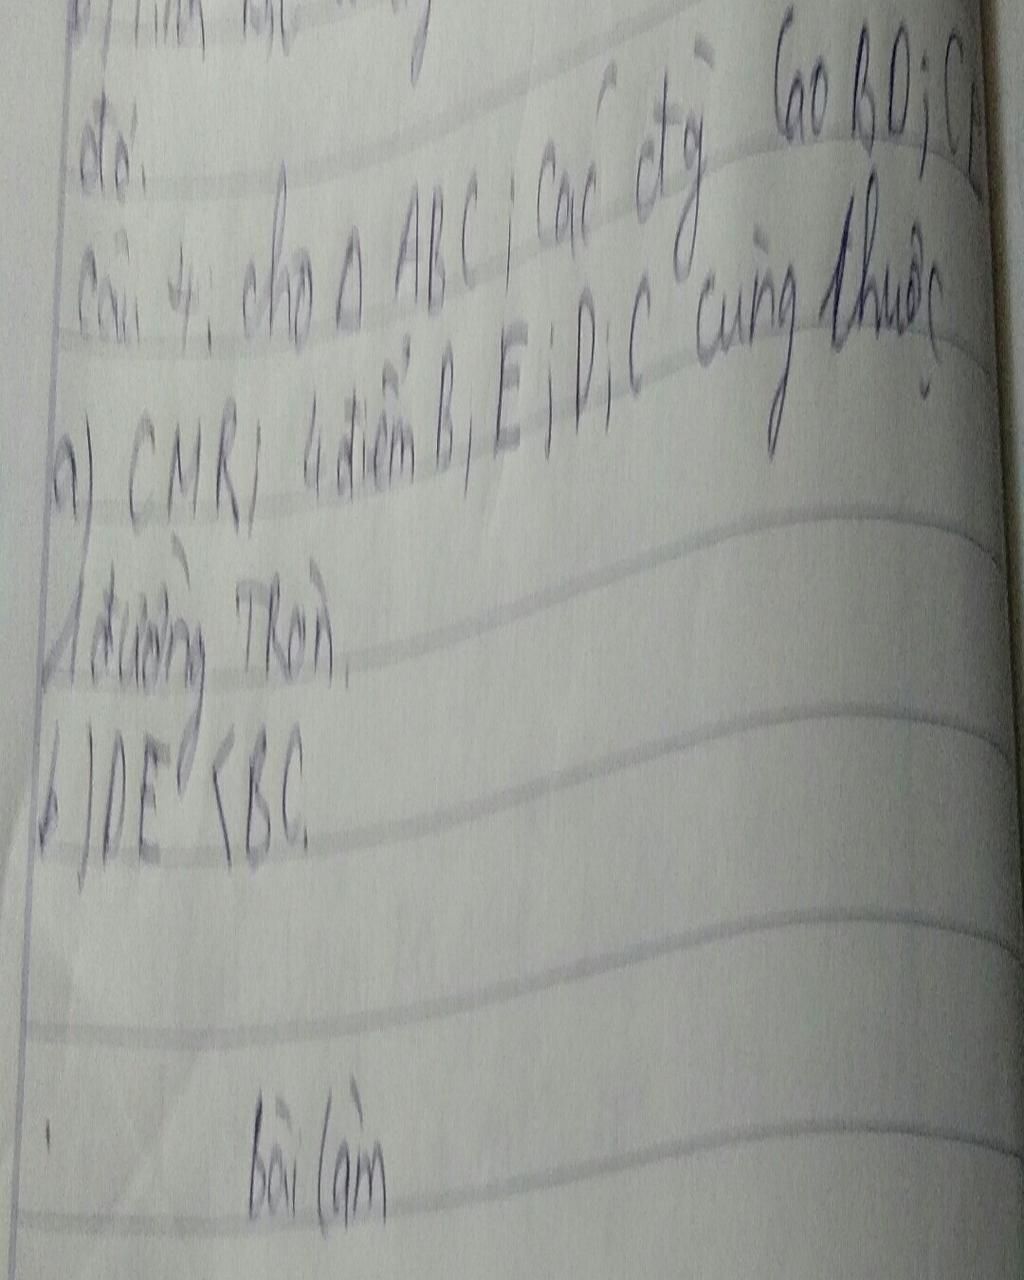 đó.
Câu 4: cho Δ ABC; các đg cao BD; C
a) CMR; 4 điểm B, E; D; C cùng thuộc
1 đường Tròn.
b) DE < BC.
bài làm